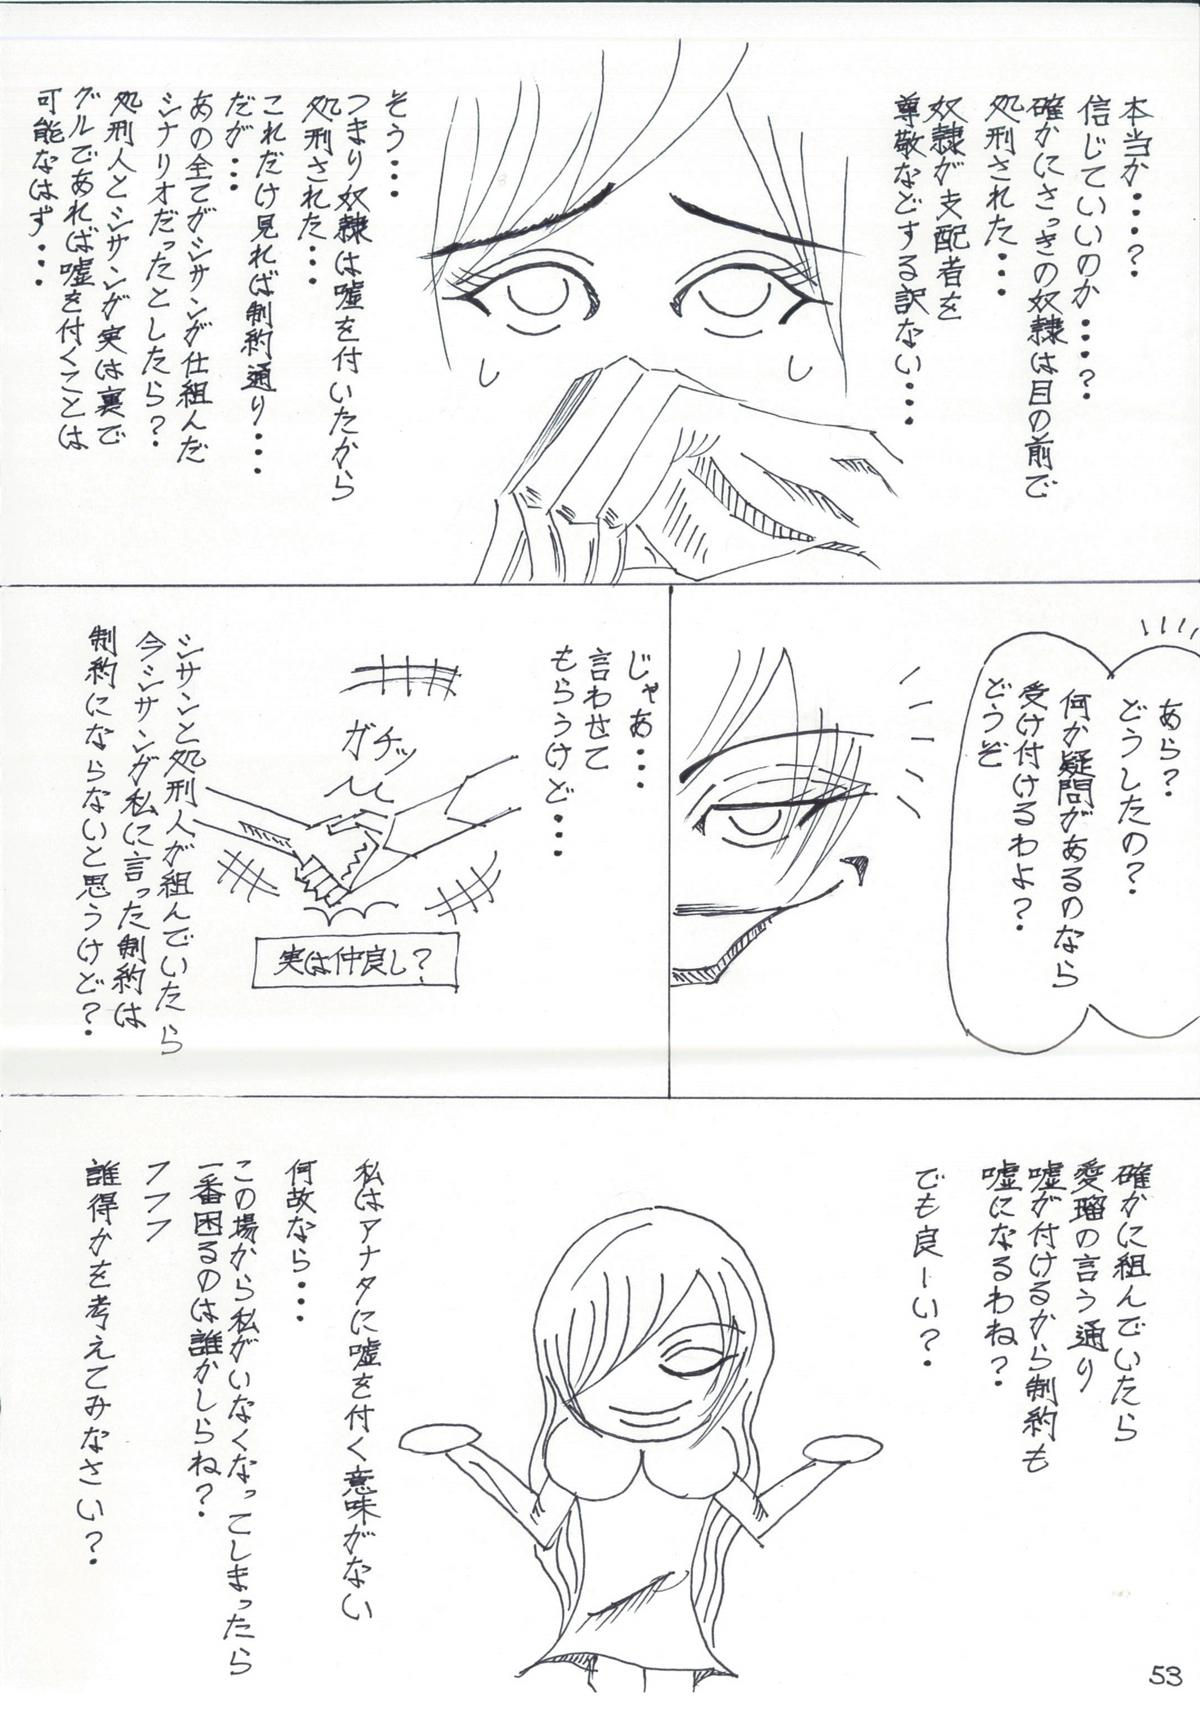 本当か・・・?
信じていいのか・・・・?
確かにさっきの奴隷は目の前で
処刑された・・・
奴隷が支配者を
尊敬などする訳ない・・・
そう・・・
つまり奴隷は嘘を付いたから
処刑された・・・
これだけ見れば制約通り・・・
だが・・・
あの全てがシサンが仕組んだ
シナリオだったとしたら?
処刑人とシサンが実は裏で
グルであれば嘘を付くことは
可能なはず・・・
あら?
どうしたの?
何か疑問があるのなら
受け付けるわよ?
どうぞ
じゃあ・・・
言わせて
もらうけど・・・
ガチッ
実は仲良し?
シサンと処刑人が組んでいたら
今シサンが私に言った制約は
制約にならないと思うけど?
確かに組んでいたら
愛瑠の言う通り
嘘が付けるから制約も
嘘になるわね?
でも良ーい?
私はアナタに嘘を付く意味がない
何故なら・・・
この場から私がいなくなってしまったら
一番困るのは誰かしらね?
フフフ
誰得かを考えてみなさい?
53